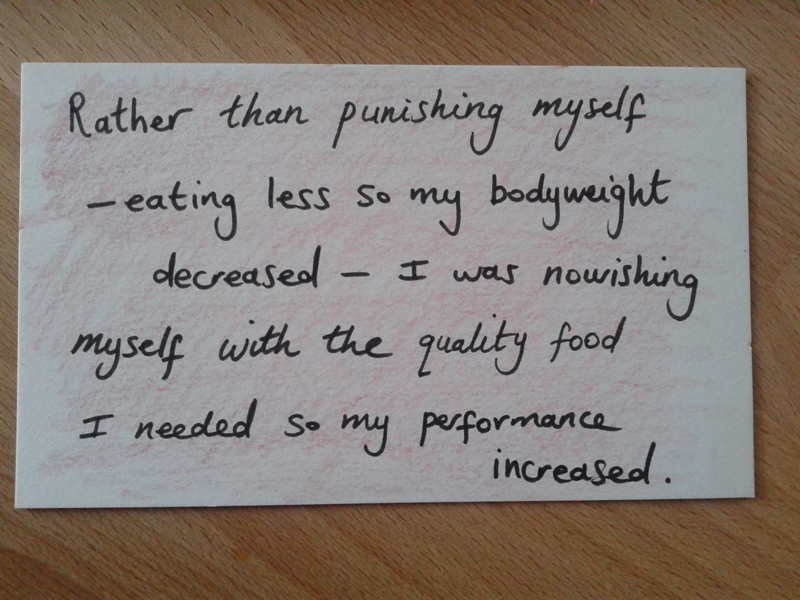 Rather than punishing myself
– eating less so my bodyweight
decreased – I was nourishing
myself with the quality food
I needed so my performance
increased.